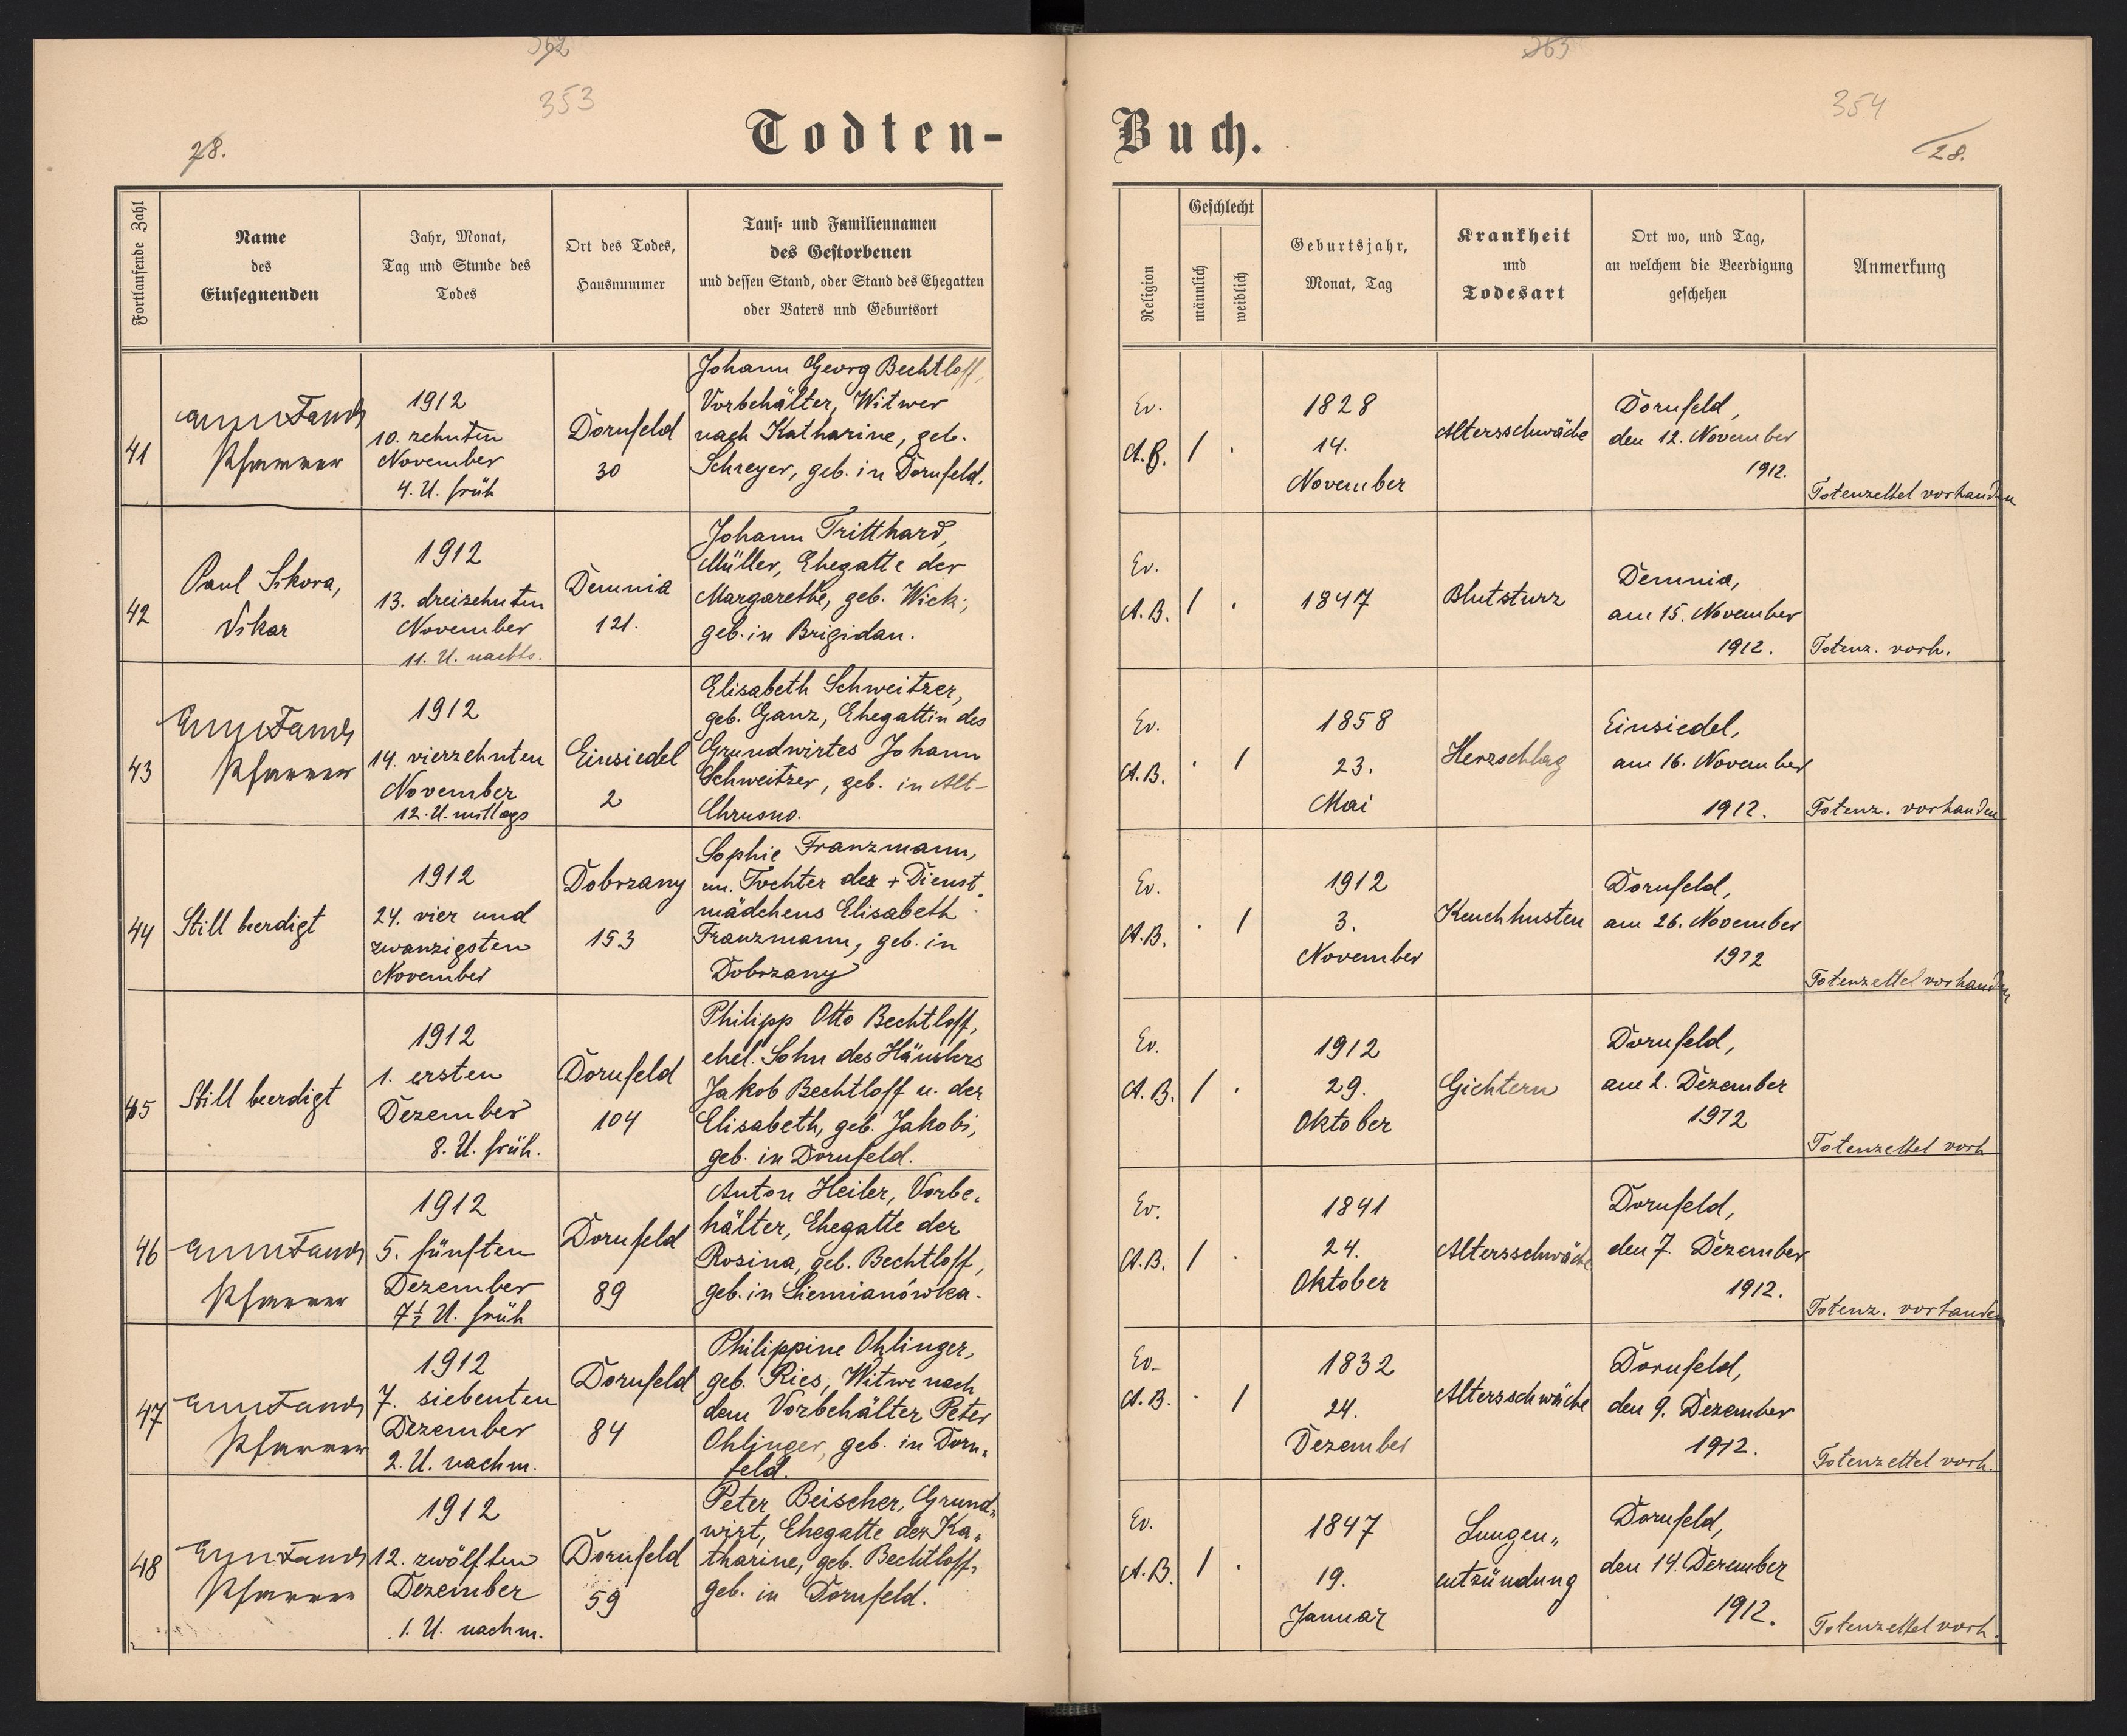 353
28.
Todten-
Fortlaufende Zahl
Name
des
Einsegnenden
Jahr, Monat,
Tag und Stunde des
Todes
Ort des Todes,
Hausnummer
Tauf- und Familiennamen
des Gestorbenen
und dessen Stand, oder Stand des Ehegatten
oder Vaters und Geburtsort
41
Pfarrer
1912
10. zehnten
November
4. U. früh
Dornfeld
30
Johann Georg Bechtloff,
Vorbehälter, Witwer
nach Katharine, geb.
Schreyer, geb. in Dornfeld.
42
Paul Sikora,
Vikar
1912
13. dreizehnten
November
11. U. nachts.
Demnia
121.
Johann Tritthard,
Müller, Ehegatte der
Margarethe, geb. Wick;
geb. in Brigidau.
43
Pfarrer
1912
14. vierzehnten
November
12. U. mittags
Einsiedel
2
Elisabeth Schweitzer,
geb. Ganz, Ehegattin des
Grundwirtes Johann
Schweitzer, geb. in Alt-
Chrusno.
44
Still beerdigt
1912
24. vier und
zwanzigsten
November
Dobrzany
153
Sophie Franzmann,
un. Tochter des + Dienst-
mädchens Elisabeth
Franzmann, geb. in
Dobrzany
45
Still beerdigt
1912
1. ersten
Dezember
8. U. früh.
Dornfeld
104
Philipp Otto Bechtloff,
ehel. Sohn des Häuslers
Jakob Bechtloff u. der
Elisabeth, geb. Jakobi,
geb. in Dornfeld.
46
Pfarrer
1912
5. fünften
Dezember
7½ U. früh
Dornfeld
89
Anton Heiler, Vorbe-
hälter, Ehegatte der
Rosina, geb. Bechtloff,
geb. in Siemianówka.
47
Pfarrer
1912
7. siebenten
Dezember
2. U. nachm.
Dornfeld
84
Philippine Ohlinger,
geb. Ries, Witwe nach
dem Vorbehälter Peter
Ohlinger, geb. in Dorn-
feld.
48
Pfarrer
1912
12. zwölften
Dezember
1. U. nachm.
Dornfeld
59
Peter Beischer, Grund-
wirt, Ehegatte der Ka-
tharine, geb. Bechtloff,
geb. in Dornfeld.
354
28.
Buch.
Religion
Geschlecht
männlich
weiblich
Geburtsjahr,
Monat, Tag
Krankheit
und
Todesart
Ort wo, und Tag,
an welchem die Beerdigung
geschehen
Anmerkung
Ev.
A.B.
1 .
1828
14.
November
Altersschwäche
Dornfeld,
den 12. November
1912.
Totenzettel vorhanden
Ev.
A.B.
1 .
1847
Blutsturz
Demnia,
am 15. November
1912.
Totenz. vorh.
Ev.
A.B.
. 1
1858
23.
Mai
Herzschlag
Einsiedel,
am 16. November
1912.
Totenz. vorhanden
Ev.
A.B.
. 1
1912
3.
November
Keuchhusten
Dornfeld,
am 26. November
1912
Totenzettel vorhanden
Ev.
A.B.
1 .
1912
29.
Oktober
Gichtern
Dornfeld,
am 2. Dezember
1912
Totenzettel vorh
Ev.
A.B.
1 .
1841
24.
Oktober
Altersschwäche
Dornfeld,
den 7. Dezember
1912.
Totenz. vorhanden
Ev.
A.B.
. 1
1832
24.
Dezember
Altersschwäche
Dornfeld,
den 9. Dezember
1912.
Totenzettel vorh.
Ev.
A.B.
1 .
1847
19.
Januar
Lungen-
entzündung
Dornfeld,
den 14. Dezember
1912.
Totenzettel vorh.